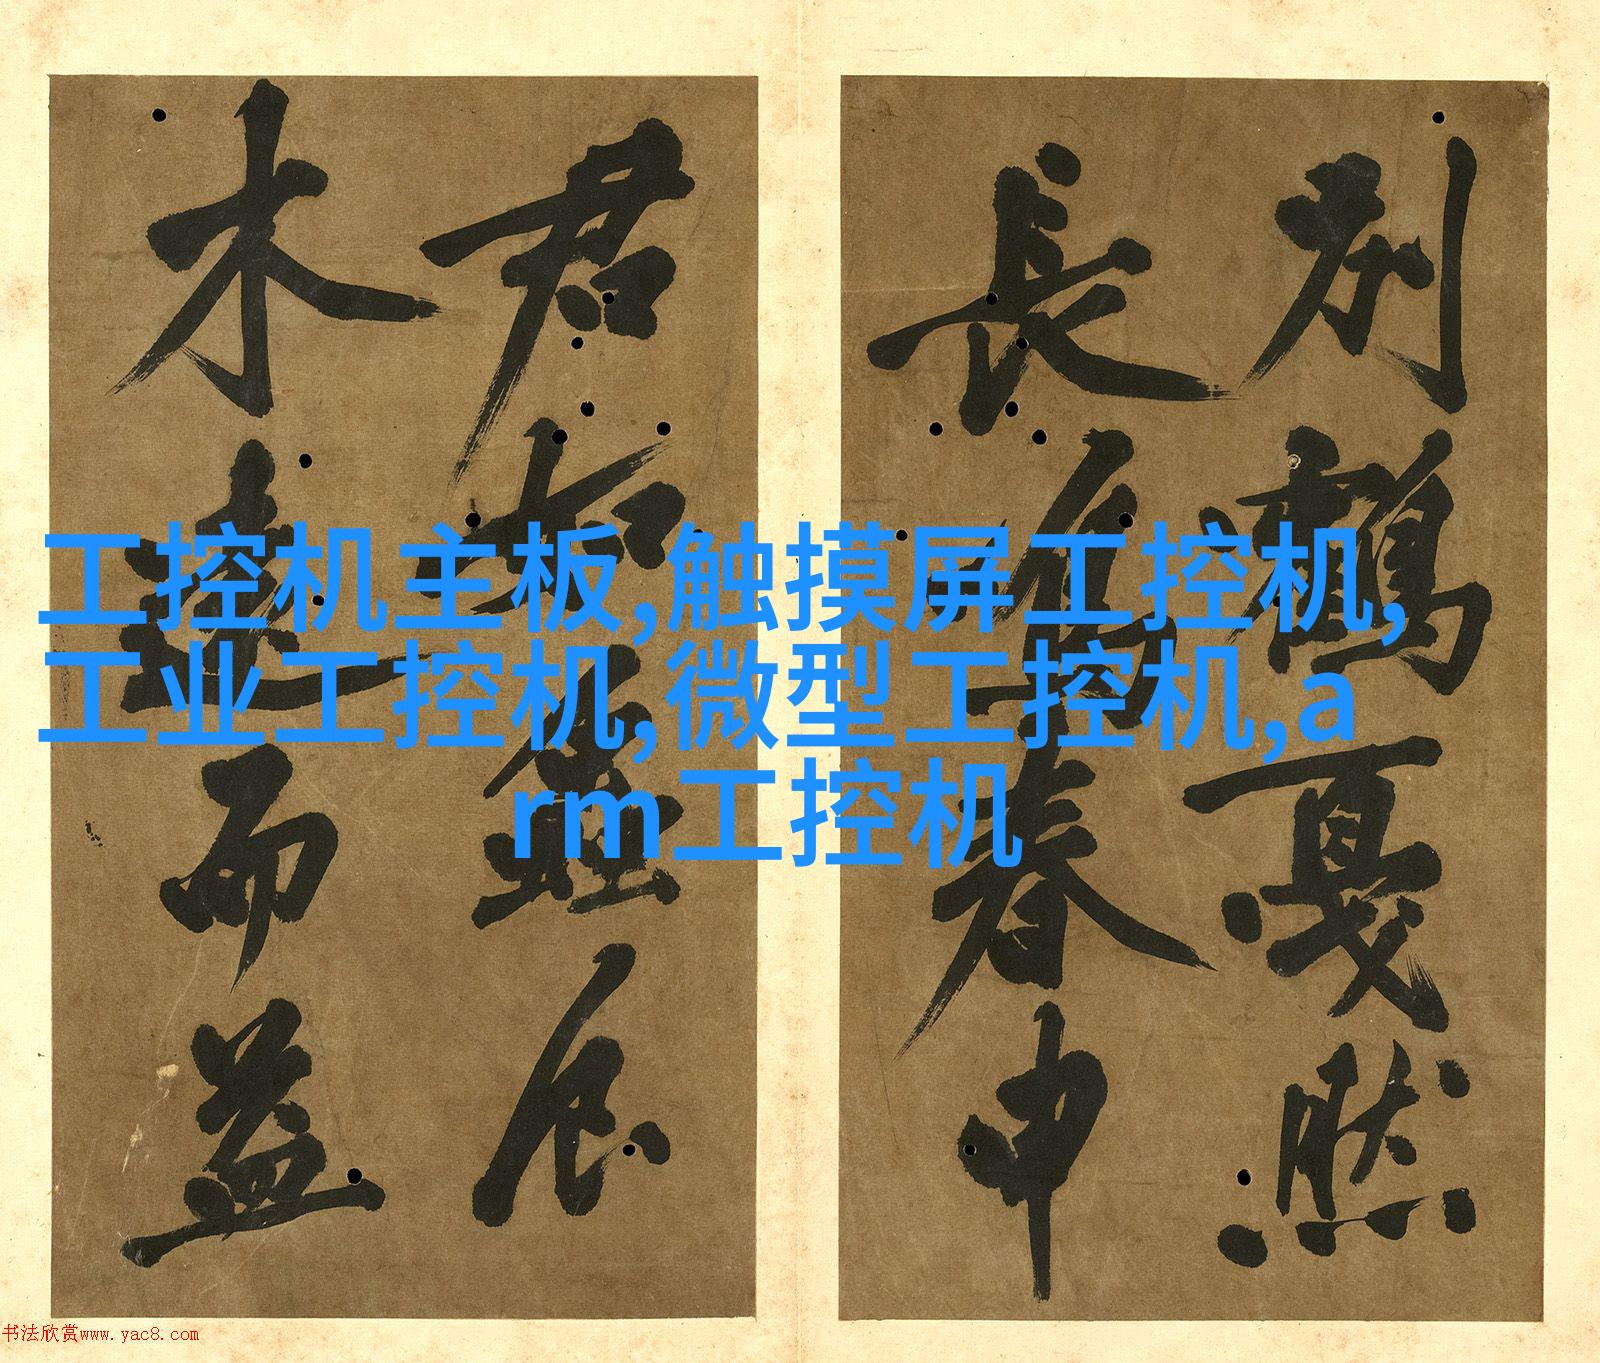 別鶴戛然
長為春申
君
木遠而益
工控机主板,触摸屏工控机,
工业工控机,微型工控机,a
rm工控机
书法欣赏www.yac8.com